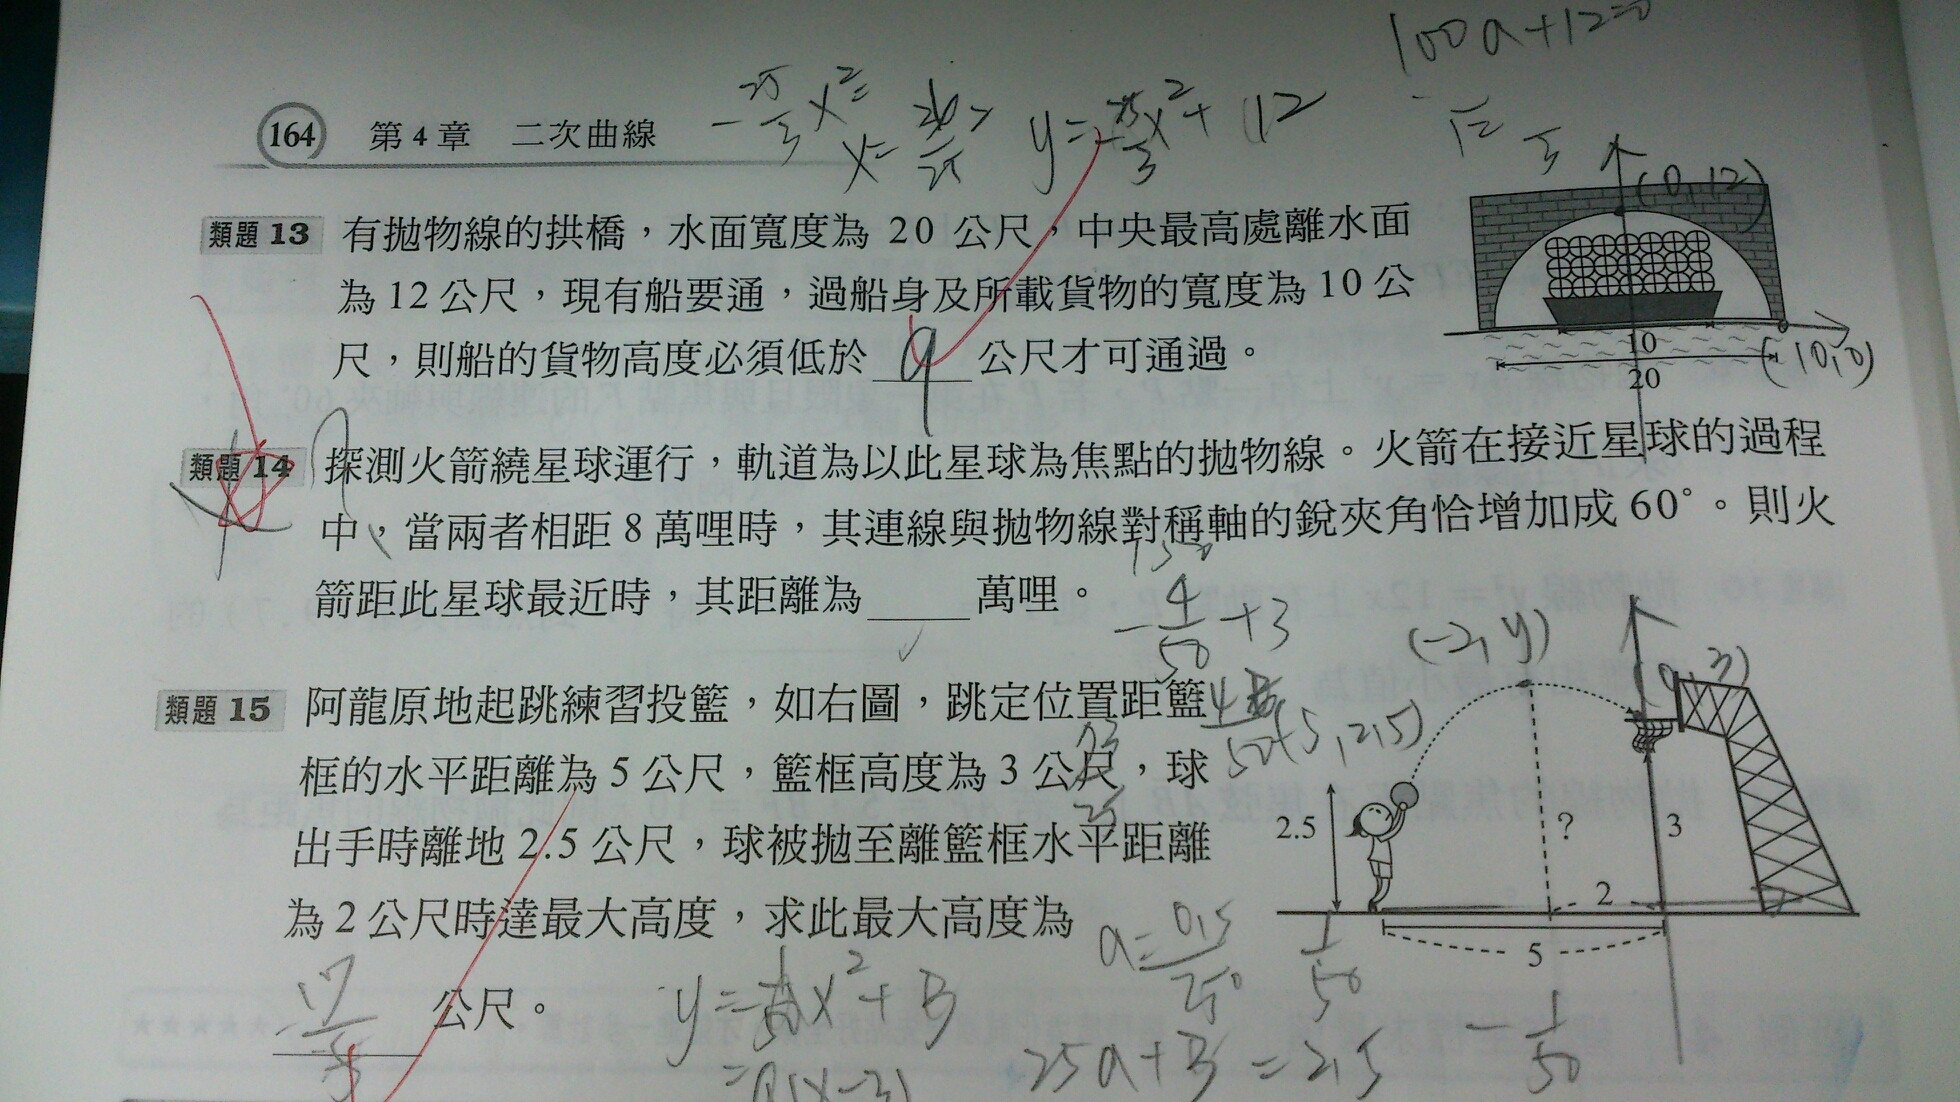 100a+12=0
164 第4章 二次曲線
x²=
x=
y= x²+12
(0,12)
類題 13 有拋物線的拱橋,水面寬度為 20 公尺,中央最高處離水面
為 12 公尺,現有船要通,過船身及所載貨物的寬度為 10 公
尺,則船的貨物高度必須低於 9 公尺才可通過。
10
20
(10,0)
類題 14 探測火箭繞星球運行,軌道為以此星球為焦點的拋物線。火箭在接近星球的過程
中,當兩者相距 8 萬哩時,其連線與拋物線對稱軸的銳夾角恰增加成 60°。則火
箭距此星球最近時,其距離為 萬哩。
-4/50+3
(-2, y)
(0,3)
類題 15 阿龍原地起跳練習投籃,如右圖,跳定位置距籃
框的水平距離為 5 公尺,籃框高度為 3 公尺,球
出手時離地 2.5 公尺,球被拋至離籃框水平距離
為 2 公尺時達最大高度,求此最大高度為
17/5 公尺。
5, 2.5)
2.5
?
3
2
5
1/50
y= x²+B
25a+B=2.5
-1/50